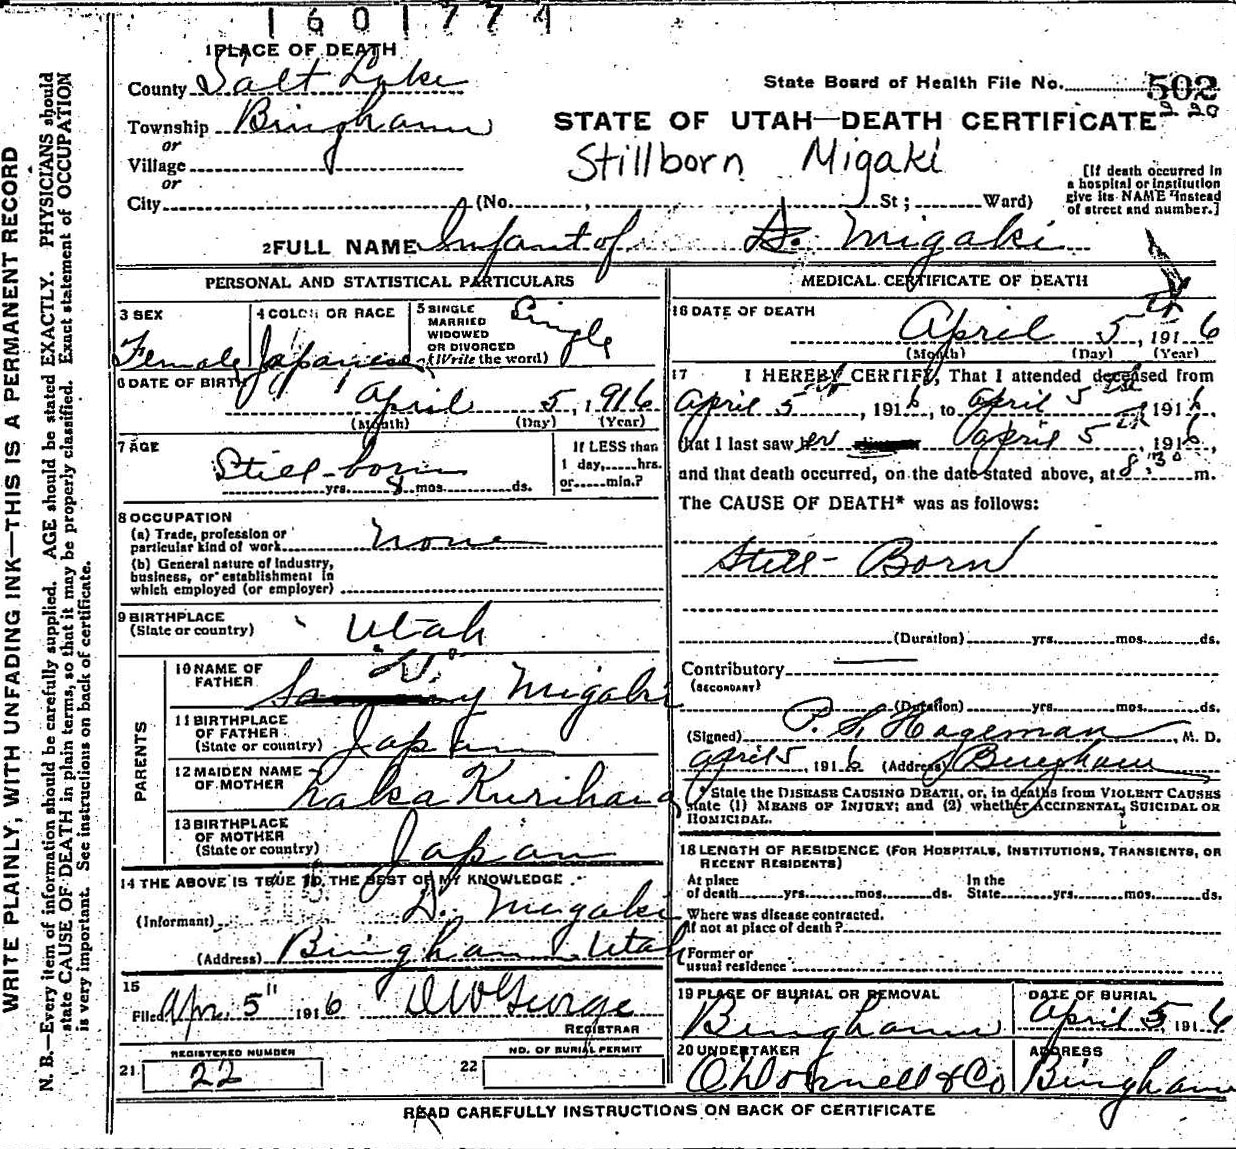 1601774
1 PLACE OF DEATH
County Salt Lake
State Board of Health File No. 502
Township Bingham
or
Village
or
City
STATE OF UTAH—DEATH CERTIFICATE
Stillborn Migaki
(No. , St; Ward)
[If death occurred in
a hospital or institution
give its NAME instead
of street and number.]
2 FULL NAME Infant of H. Migaki
PERSONAL AND STATISTICAL PARTICULARS
3 SEX
Female
4 COLOR OR RACE
Japanese
5 SINGLE
MARRIED
WIDOWED
OR DIVORCED
(Write the word)
Single
6 DATE OF BIRTH
April 5, 1916
(Month) (Day) (Year)
7 AGE
Still-born
yrs. 8 mos. ds.
If LESS than
1 day, hrs.
or min.?
8 OCCUPATION
(a) Trade, profession or
particular kind of work none
(b) General nature of Industry,
business, or establishment in
which employed (or employer)
9 BIRTHPLACE
(State or country)
Utah
PARENTS
10 NAME OF
FATHER
Migaki
11 BIRTHPLACE
OF FATHER
(State or country)
Japan
12 MAIDEN NAME
OF MOTHER
13 BIRTHPLACE
OF MOTHER
(State or country)
Japan
14 THE ABOVE IS TRUE TO THE BEST OF MY KNOWLEDGE
(Informant) H. Migaki
(Address) Bingham Utah
15
Filed Apr. 5" 1916 George
REGISTRAR
REGISTERED NUMBER
21 22
NO. OF BURIAL PERMIT
22
MEDICAL CERTIFICATE OF DEATH
16 DATE OF DEATH
April 5th, 1916
(Month) (Day) (Year)
17 I HEREBY CERTIFY, That I attended deceased from
April 5th, 1916, to April 5th 1916,
that I last saw her April 5th, 1916,
and that death occurred, on the date stated above, at 8:30 m.
The CAUSE OF DEATH* was as follows:
Still-Born
(Duration) yrs. mos. ds.
Contributory
(SECONDARY)
(Duration) yrs. mos. ds.
(Signed) P. S. Hageman, M. D.
April 5, 1916 (Address) Bingham
* State the DISEASE CAUSING DEATH, or, in deaths from VIOLENT CAUSES
state (1) MEANS OF INJURY; and (2) whether ACCIDENTAL, SUICIDAL OR
HOMICIDAL.
18 LENGTH OF RESIDENCE (FOR HOSPITALS, INSTITUTIONS, TRANSIENTS, OR
RECENT RESIDENTS)
At place In the
of death yrs. mos. ds. State yrs. mos. ds.
Where was disease contracted,
if not at place of death?
Former or
usual residence
19 PLACE OF BURIAL OR REMOVAL
Bingham
DATE OF BURIAL
April 5, 1916
20 UNDERTAKER
O'Donnell & Co
ADDRESS
Bingham
READ CAREFULLY INSTRUCTIONS ON BACK OF CERTIFICATE
WRITE PLAINLY, WITH UNFADING INK—THIS IS A PERMANENT RECORD
N. B.—Every item of information should be carefully supplied. AGE should be stated EXACTLY. PHYSICIANS should
state CAUSE OF DEATH in plain terms, so that it may be properly classified. Exact statement of OCCUPATION
is very important. See instructions on back of certificate.